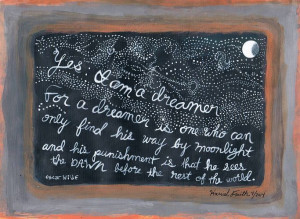 Yes: I am a dreamer
For a dreamer is one who can
only find his way by moonlight
and his punishment is that he sees
the DAWN before the rest of the world.
OSCAR WILDE